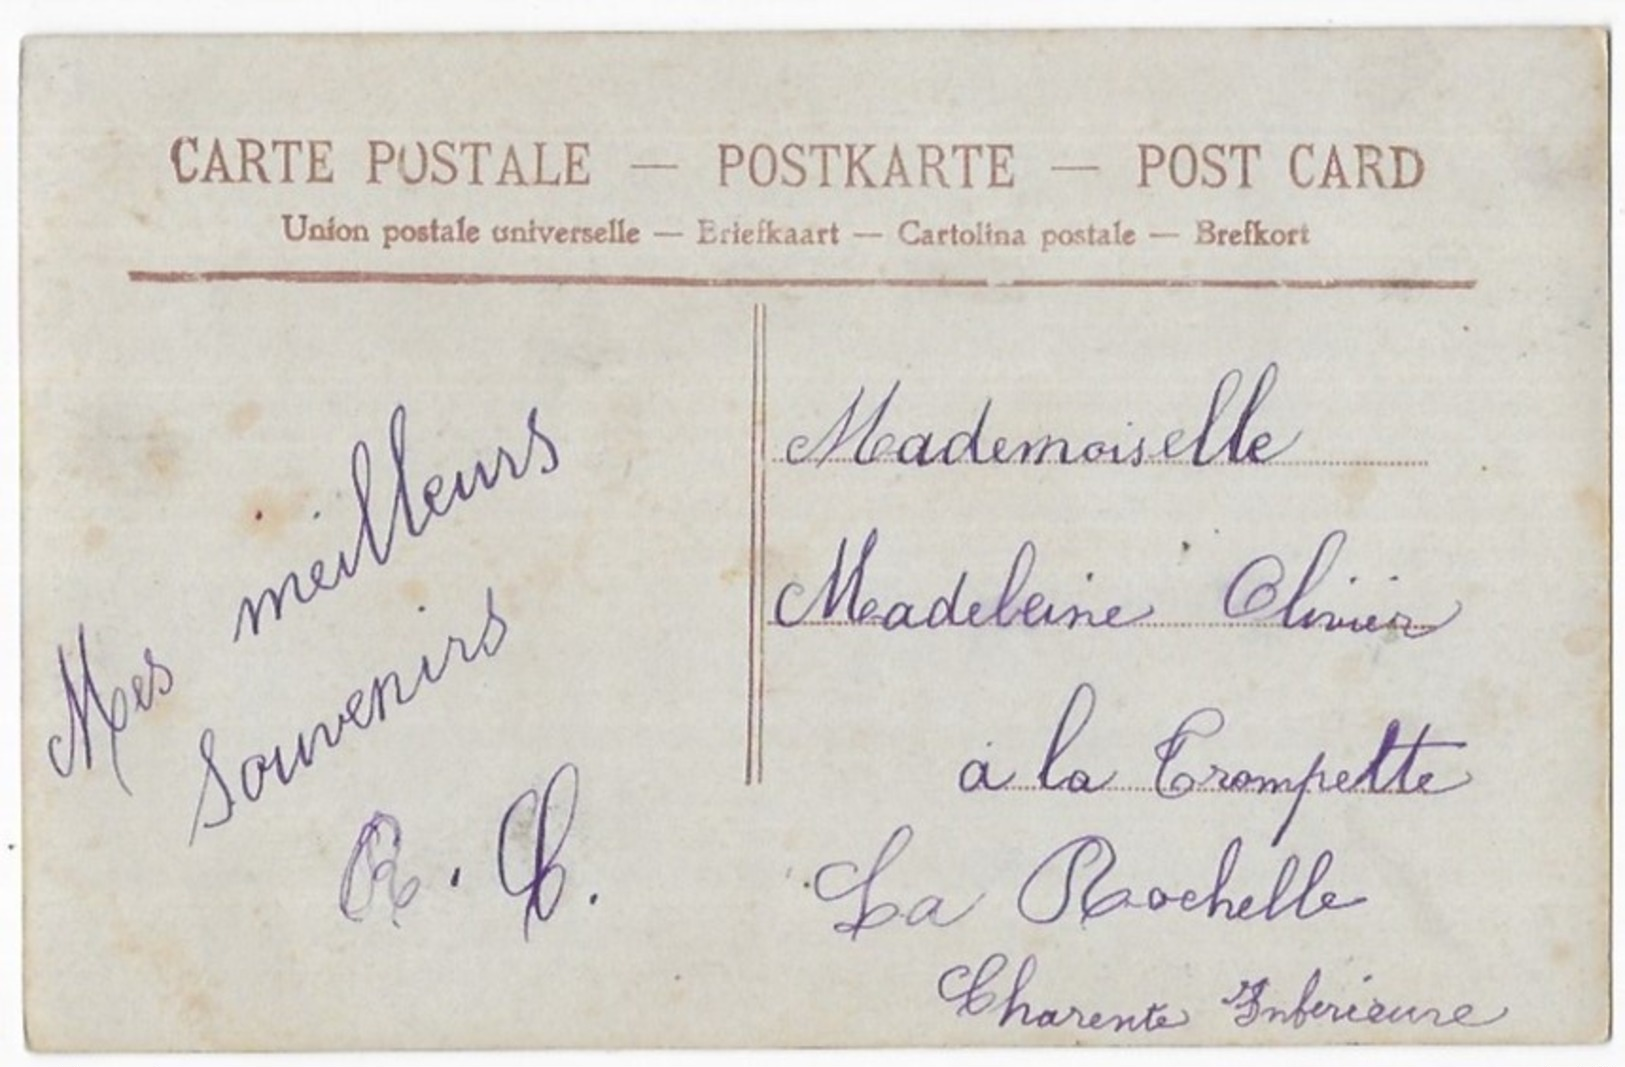 CARTE POSTALE — POSTKARTE — POST CARD
Union postale universelle — Briefkaart — Cartolina postale — Brefkort
Mes meilleurs
Souvenirs
Mademoiselle
Madeleine Olivier
à la Trompette
La Rochelle
Charente Inferieure